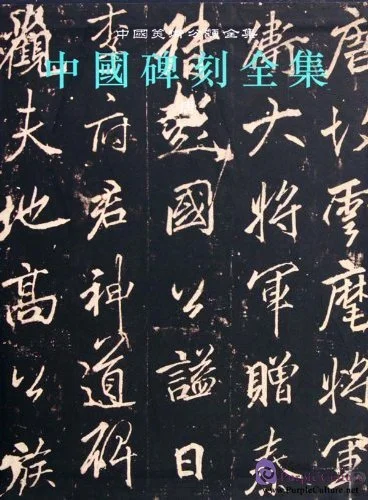 中國美術分類全集
中國碑刻全集
唐故雲麾將軍
衛大將軍贈秦
督彭國公諡曰
李府君神道碑
觀夫地高公族
Purple Culture
www.PurpleCulture.net